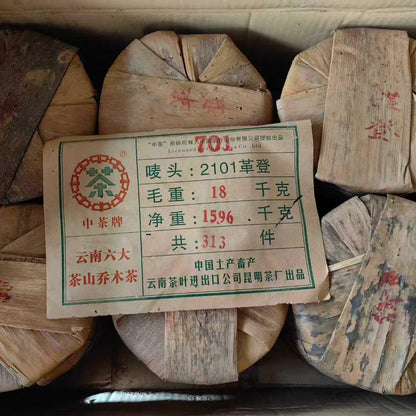 701
"中茶"
唛头：2101革登
毛重：18 千克
净重：1596 千克
共：313 件
中茶牌
云南六大
茶山乔木茶
中国土产畜产
云南茶叶进出口公司昆明茶厂出品
茶
革登